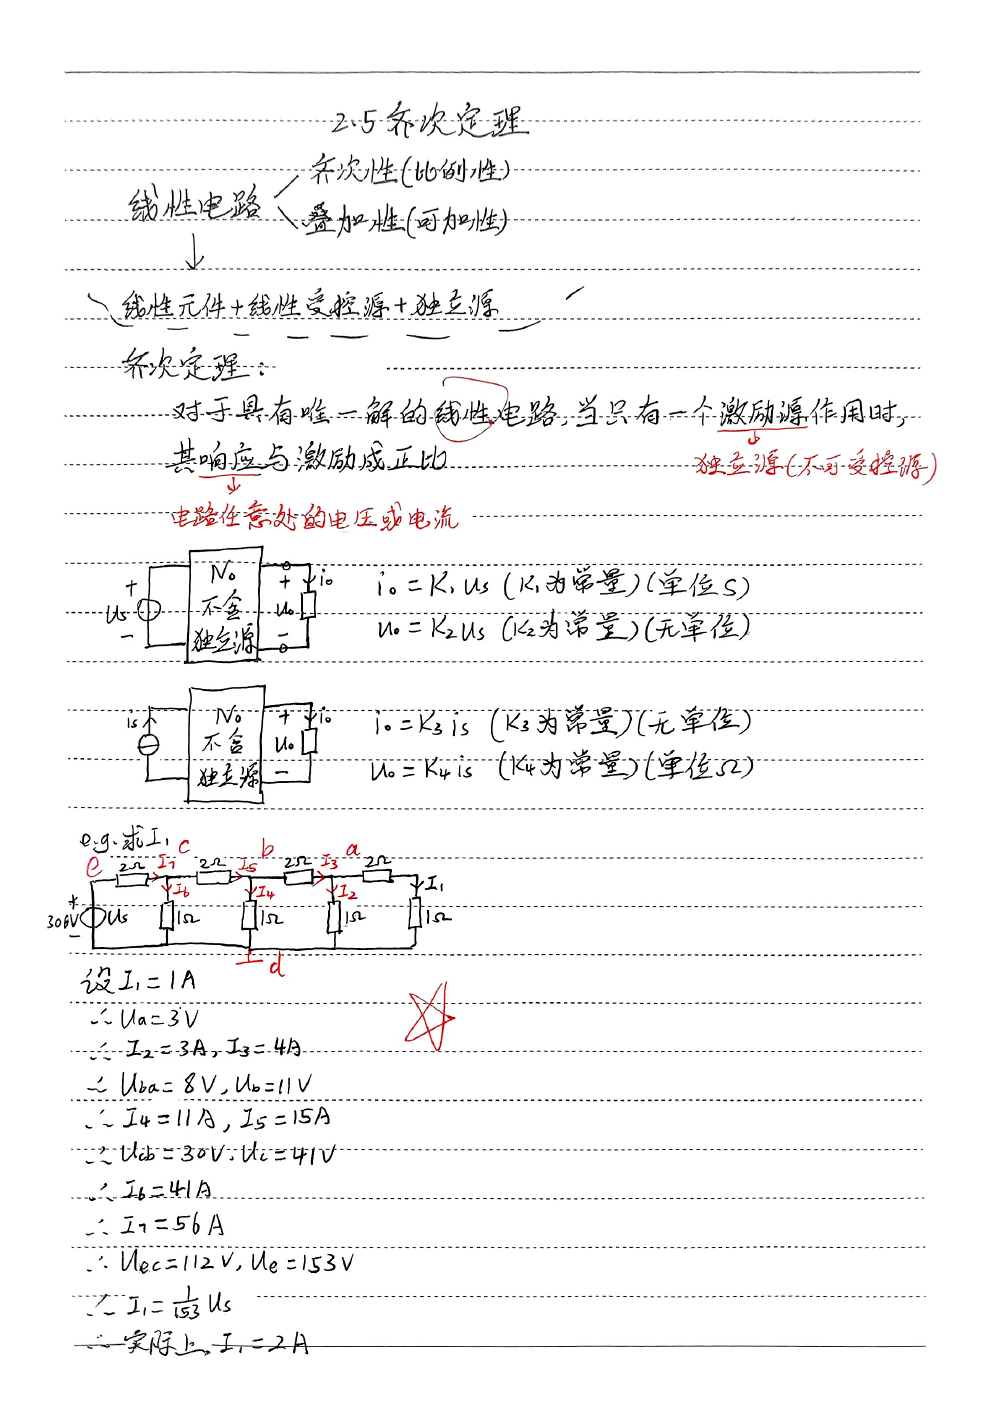 2.5 齐次定理
齐次性(比例性)
线性电路
叠加性(可加性)
线性元件+线性受控源+独立源
齐次定理:
对于具有唯一解的线性电路,当只有一个激励源作用时,
其响应与激励成正比
独立源(不可受控源)
电路任意处的电压或电流
N₀
不含
独立源
+
Us
−
+
U₀
−
i₀
i₀=K₁Us (K₁为常量)(单位S)
U₀=K₂Us (K₂为常量)(无单位)
N₀
不含
独立源
is
+
U₀
−
i₀
i₀=K₃is (K₃为常量)(无单位)
U₀=K₄is (K₄为常量)(单位Ω)
e.g.求I₁
e 2Ω I₇ c 2Ω I₅ b 2Ω I₃ a 2Ω
I₆ I₄ I₂ I₁
+
306V Us 1Ω 1Ω 1Ω 1Ω
−
d
设I₁=1A
∴Ua=3V
∴I₂=3A,I₃=4A
∴Uba=8V,Ub=11V
∴I₄=11A,I₅=15A
∴Ucb=30V,Uc=41V
∴I₆=41A
∴I₇=56A
∴Uec=112V,Ue=153V
∴I₁=1/153 Us
∴实际上,I₁=2A